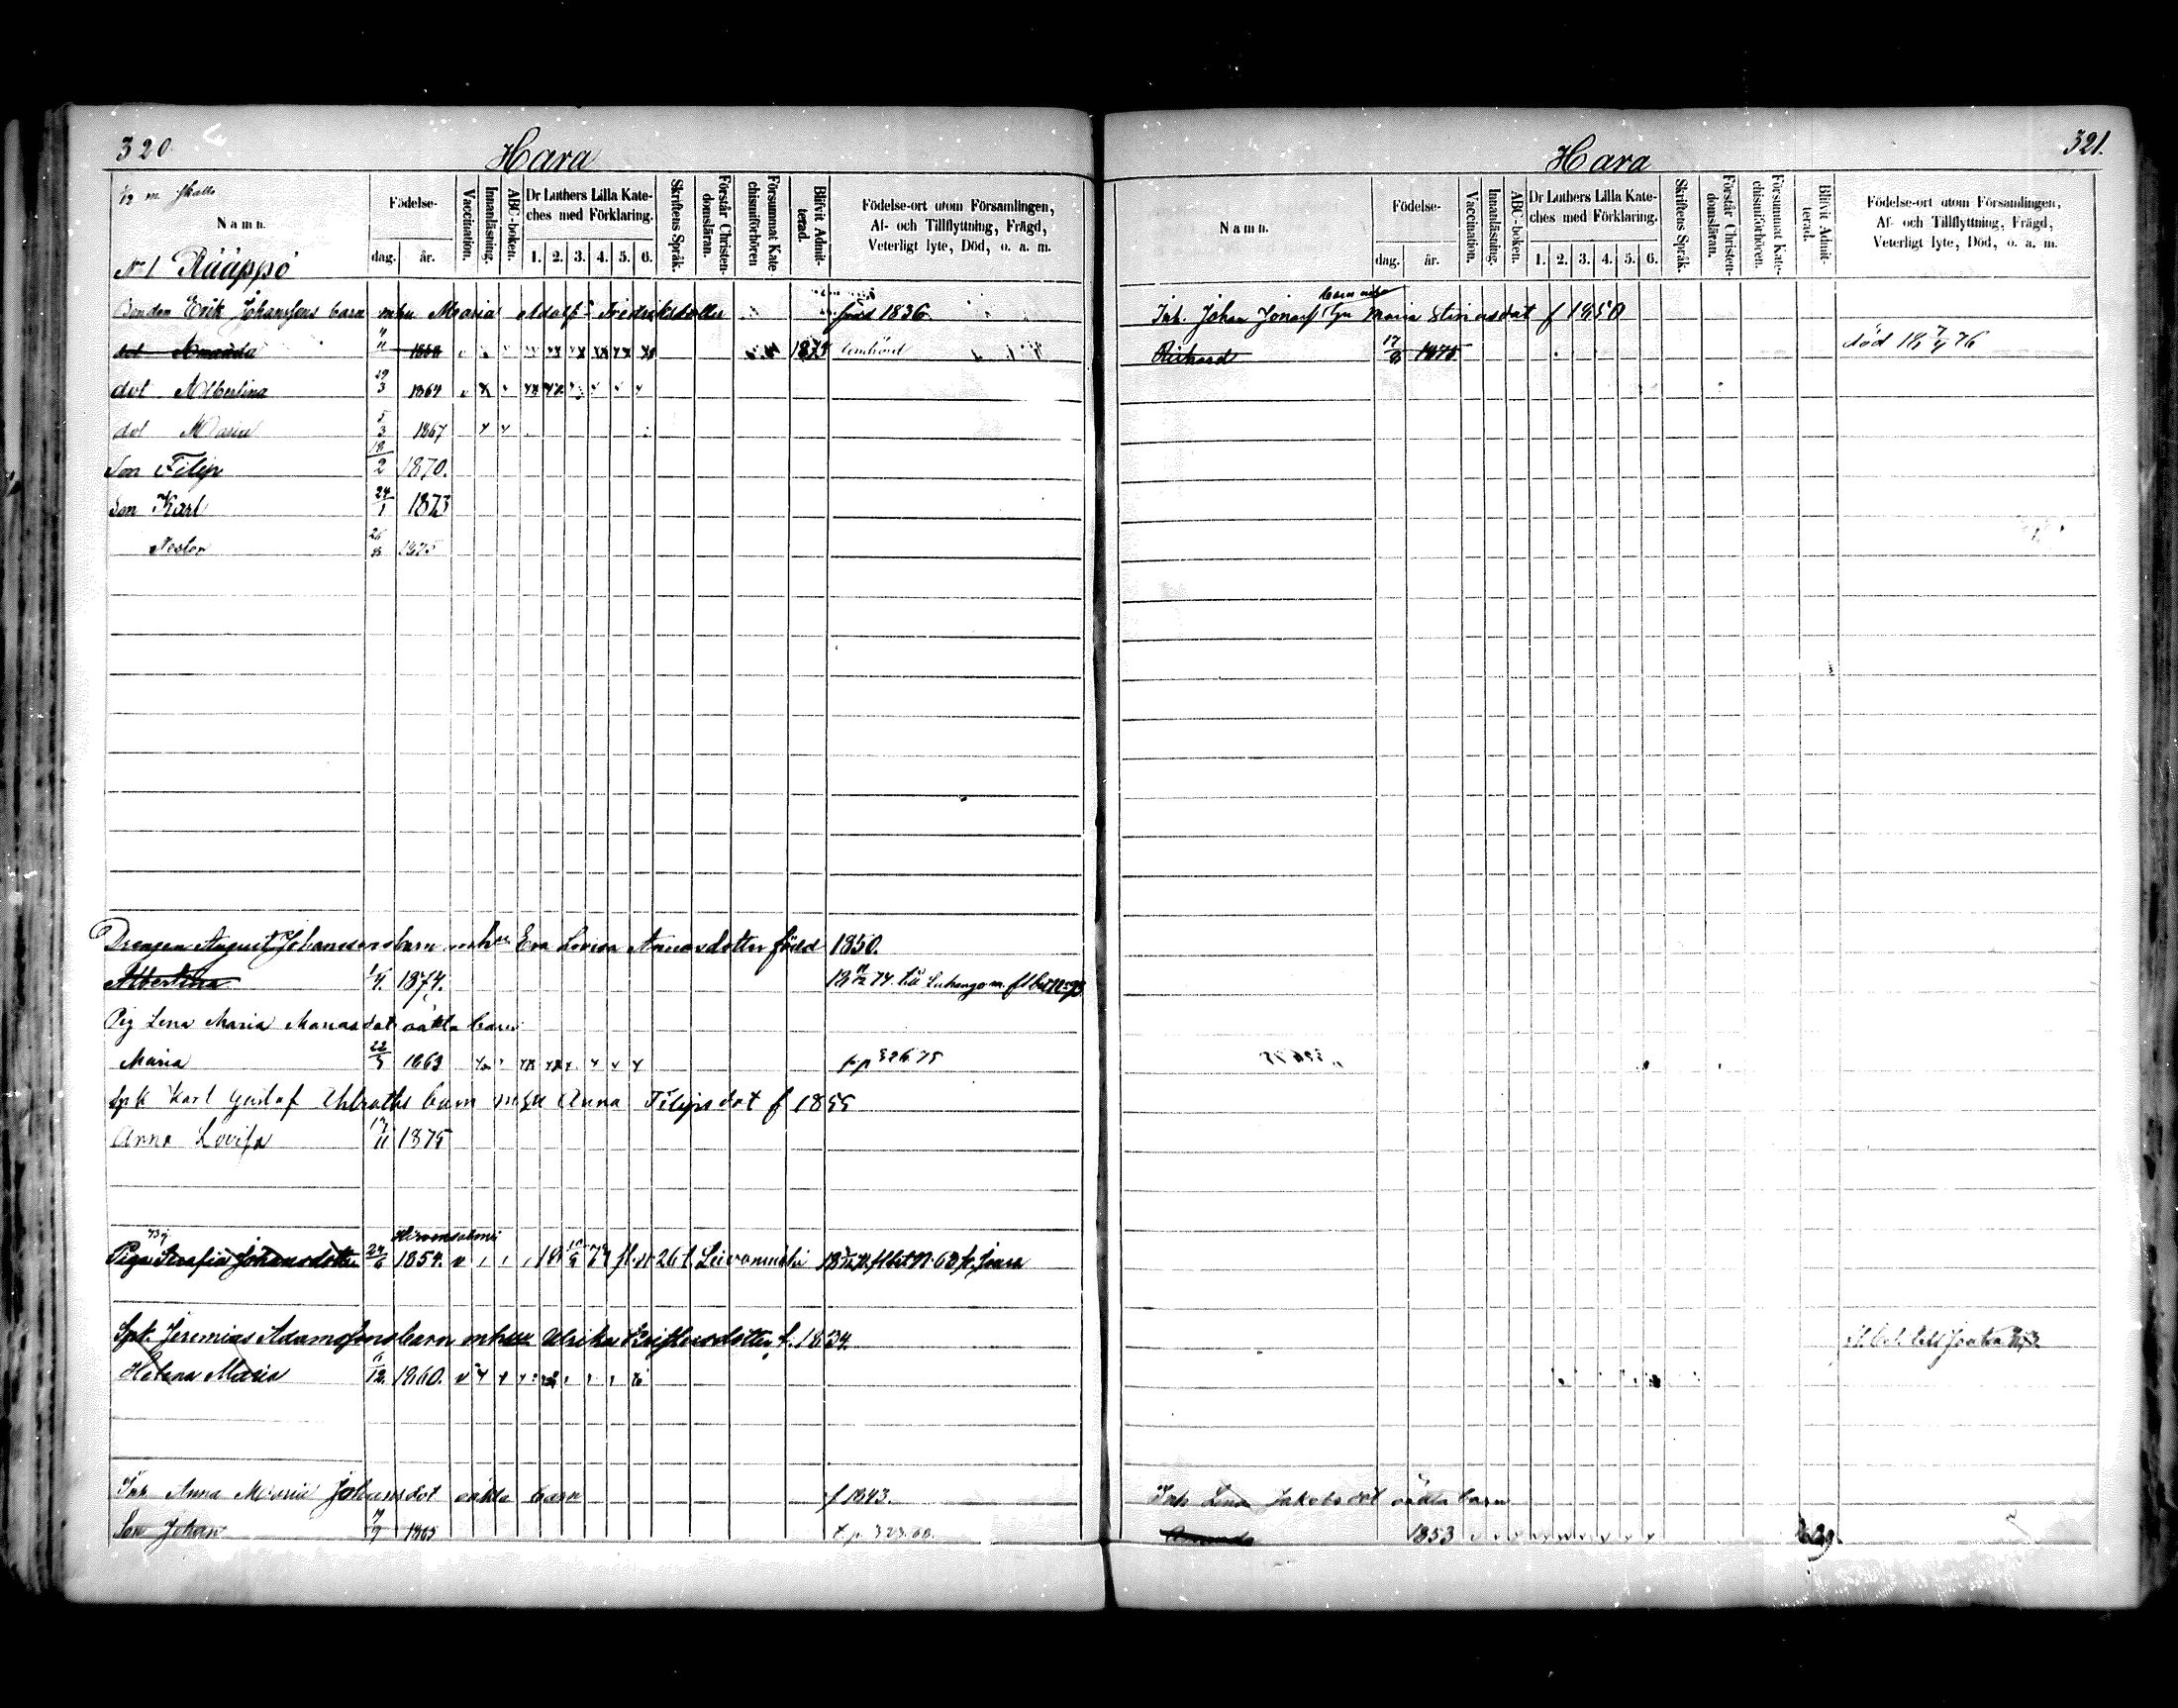 320.
Hara
1/2 m skatt
Namn.
Födelse-
dag.
år.
Vaccination.
Innanläsning.
ABC-boken.
Dr Luthers Lilla Kate-
ches med Förklaring.
1. 2. 3. 4. 5. 6.
Skriftens Språk.
Förstår Christen-
domsläran.
Försummat Kate-
chismiförhören
Blifvit Admit-
terad.
Födelse-ort utom Församlingen,
Af- och Tillflyttning, Frägd,
Veterligt lyte, Död, o. a. m.
N 1 Rääppö
Bonden Erik Johanssons barn mhu Maria Adolf Fredriksdotter född 1836.
dot Amanda 1875
dot Albertina 29/3 1864
dot Maria 5/3 1867
Son Filip 18/2 1870.
Son Karl 24/1 1873
Nestor 26/8 1875
Drengen August Johanssons barn mhu Eva Lovisa Annasdotter född 1850.
Albertina 1/4. 1874.
Pig Lena Maria Mariasdot oäkta barn
Maria 22/5 1863 p. 326 75
Spk Karl Gustaf Ahlroths barn mhu Anna Filipsdot f 1855
Anna Lovisa 17/11 1875
Hirvensalmi
Pigan Serafia Johansdotter 24/6 1854. fl. N 26 f. Leivonmäki
Spk. Jeremias Adamssons barn mhu Ulrika f. 1834.
Helena Maria 6/12. 1860.
Inh Anna Maria Johansdot oäkta barn f 1843.
Son Johan 1865 p. 323. 68.
321.
Hara
Namn.
Födelse-
dag.
år.
Vaccination.
Innanläsning.
ABC-boken.
Dr Luthers Lilla Kate-
ches med Förklaring.
1. 2. 3. 4. 5. 6.
Skriftens Språk.
Förstår Christen-
domsläran.
Försummat Kate-
chismiförhören.
Blifvit Admit-
terad.
Födelse-ort utom Församlingen,
Af- och Tillflyttning, Frägd,
Veterligt lyte, Död, o. a. m.
barn mhu
Inh. Johan Jonass Maria Stinasdot f 1850
Richard 17/8 1875 död 18 7/4 76
Inh Lena Jakobsdot oäkta barn
Amanda 1853